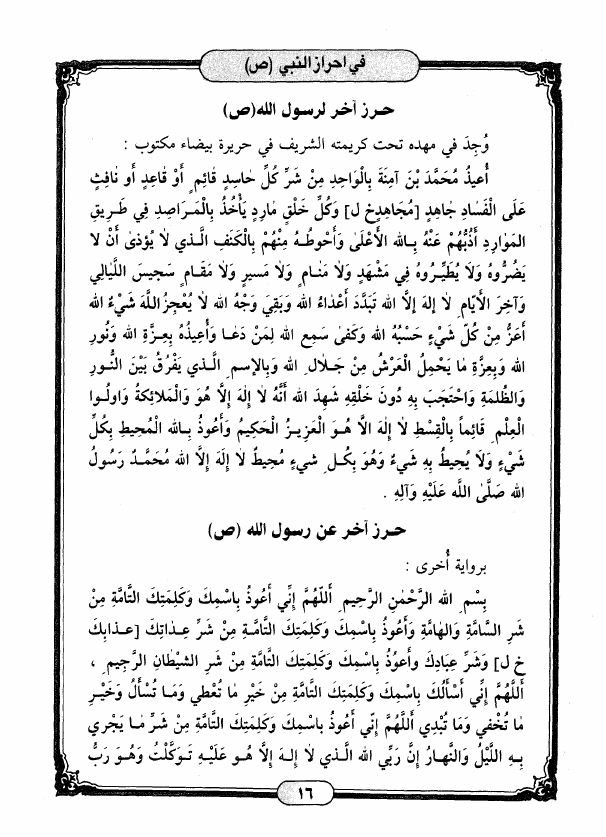 في احراز النبي (ص)
حرز آخر لرسول الله(ص)
وُجِدَ في مهده تحت كريمته الشريف في حريرة بيضاء مكتوب :
أُعيذُ مُحَمَّدَ بْنَ آمِنَةَ بِالْواحِدِ مِنْ شَرِّ كُلِّ حاسِدٍ قائِمٍ أَوْ قاعِدٍ أَو نافِثٍ
عَلَى الْفَسادِ جاهِدٍ [مُجَاهِدٍ خ ل] وَكُلِّ خَلْقٍ مارِدٍ يَأْخُذُ بِالْمَراصِدِ فِي طَريقِ
المَوارِدِ أَذُبُّهُمْ عَنْهُ بِالله الأَعْلىٰ وَأَحُوطُهُ مِنْهُمْ بِالْكَنَفِ الَّذي لا يُؤذىٰ أَنْ لا
يَضُرُّوهُ وَلا يُطَيِّرُوهُ فِي مَشْهَدٍ وَلا مَنامٍ وَلا مَسيرٍ وَلا مَقامٍ سَجيسَ اللَّيالي
وَآخِرَ الأَيّامِ لا إلهَ إلاَّ الله تَبَدَّدَ أَعْداءُ الله وَبَقِيَ وَجْهُ الله لا يُعْجِزُ اللَّهَ شَيْءٌ الله
أَعَزُّ مِنْ كُلِّ شَيْءٍ حَسْبُهُ الله وَكَفىٰ سَمِعَ الله لِمَنْ دَعا وَأُعيذُهُ بِعِزَّةِ الله وَنُورِ
الله وَبِعِزَّةِ ما يَحْمِلُ الْعَرْشُ مِنْ جَلالِ الله وَبِالإسمِ الَّذي يَفْرُقُ بَيْنَ النُّورِ
وَالظُّلمَةِ وَاحْتَجَبَ بِهِ دُونَ خَلْقِهِ شَهِدَ الله أَنَّهُ لا إلهَ إلاَّ هُوَ وَالْمَلائِكَةُ وَاولُوا
الْعِلْمِ قائِماً بِالْقِسْطِ لا إلهَ الاَّ هُوَ الْعَزيزُ الْحَكيمُ وَأَعُوذُ بِالله الْمُحيطِ بِكُلِّ
شَيْءٍ وَلا يُحيطُ بِهِ شَيءٌ وَهُوَ بِكُلِ شيءٍ مُحيطٌ لا إلَهَ إلاَّ الله مُحَمَّدٌ رَسُولُ
الله صَلَّى اللَّه عَلَيْهِ وَآلِهِ .
حرز آخر عن رسول الله (ص)
برواية أُخرى :
بِسْمِ الله الرَّحْمٰنِ الرَّحيمِ أَللّهُمَّ إنّي أَعُوذُ بِاسْمِكَ وَكَلِمَتِكَ التّامَّةِ مِنْ
شَرِ السّامَّةِ وَالهامَّةِ وَأَعُوذُ بِاسْمِكَ وَكَلِمَتِكَ التّامَّةِ مِنْ شَرِّ عِداتِكَ [عذابِكَ
خ ل] وَشَرِّ عِبادِكَ وأَعوذُ بِاسْمِكَ وَكَلِمَتِكَ التّامَّةِ مِنْ شَرِ الشيْطانِ الرَّجيمِ ،
أَللَّهُمَّ إنّي أَسْأَلُكَ بِاسْمِكَ وَكَلِمَتِكَ التّامَّةِ مِنْ خَيْرِ ما تُعْطي وَمَا تُسْأَلُ وَخَيْرِ
ما تُخْفي وَمَا تُبْدي أَللَّهُمَّ إنّي أَعوذُ بِاسْمِكَ وَكَلِمَتِكَ التّامَّةِ مِنْ شَرِّ ما يَجْري
بِهِ اللَّيْلُ وَالنَّهارُ إنَّ رَبِّيَ الله الَّذي لا إلهَ إلاَّ هو عَلَيْهِ تَوَكَّلْتُ وَهُوَ رَبُّ
١٦